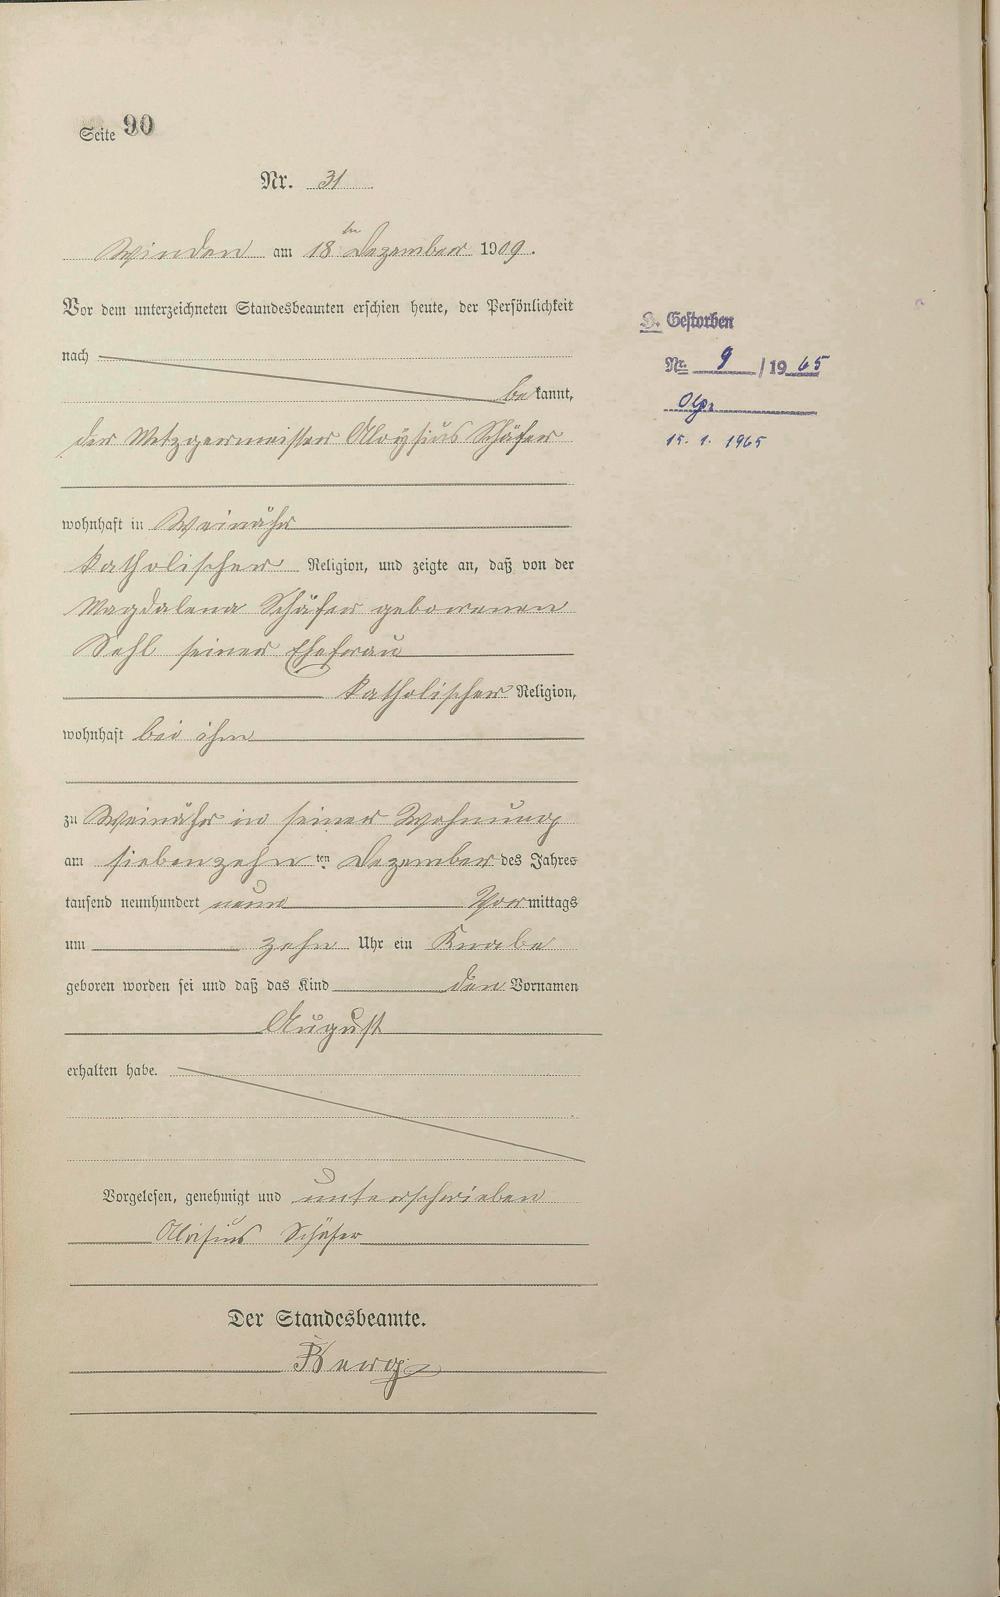 Seite 90
Nr. 31
Winden am 18ten Dezember 1909.
Vor dem unterzeichneten Standesbeamten erschien heute, der Persönlichkeit
nach
be kannt,
der Metzgermeister Aloysius Schäfer
wohnhaft in Weinähr
katholischer Religion, und zeigte an, daß von der
Magdalena Schäfer geborenen
Sehl seiner Ehefrau
katholischer Religion,
wohnhaft bei ihm
zu Weinähr in seiner Wohnung
am siebenzehn ten Dezember des Jahres
tausend neunhundert neun Vormittags
um zehn Uhr ein Knabe
geboren worden sei und daß das Kind den Vornamen
August
erhalten habe.
Vorgelesen, genehmigt und unterschrieben
Aloisius Schäfer
Der Standesbeamte.
Berg
Gestorben
Nr. 9 / 1965
15. 1. 1965